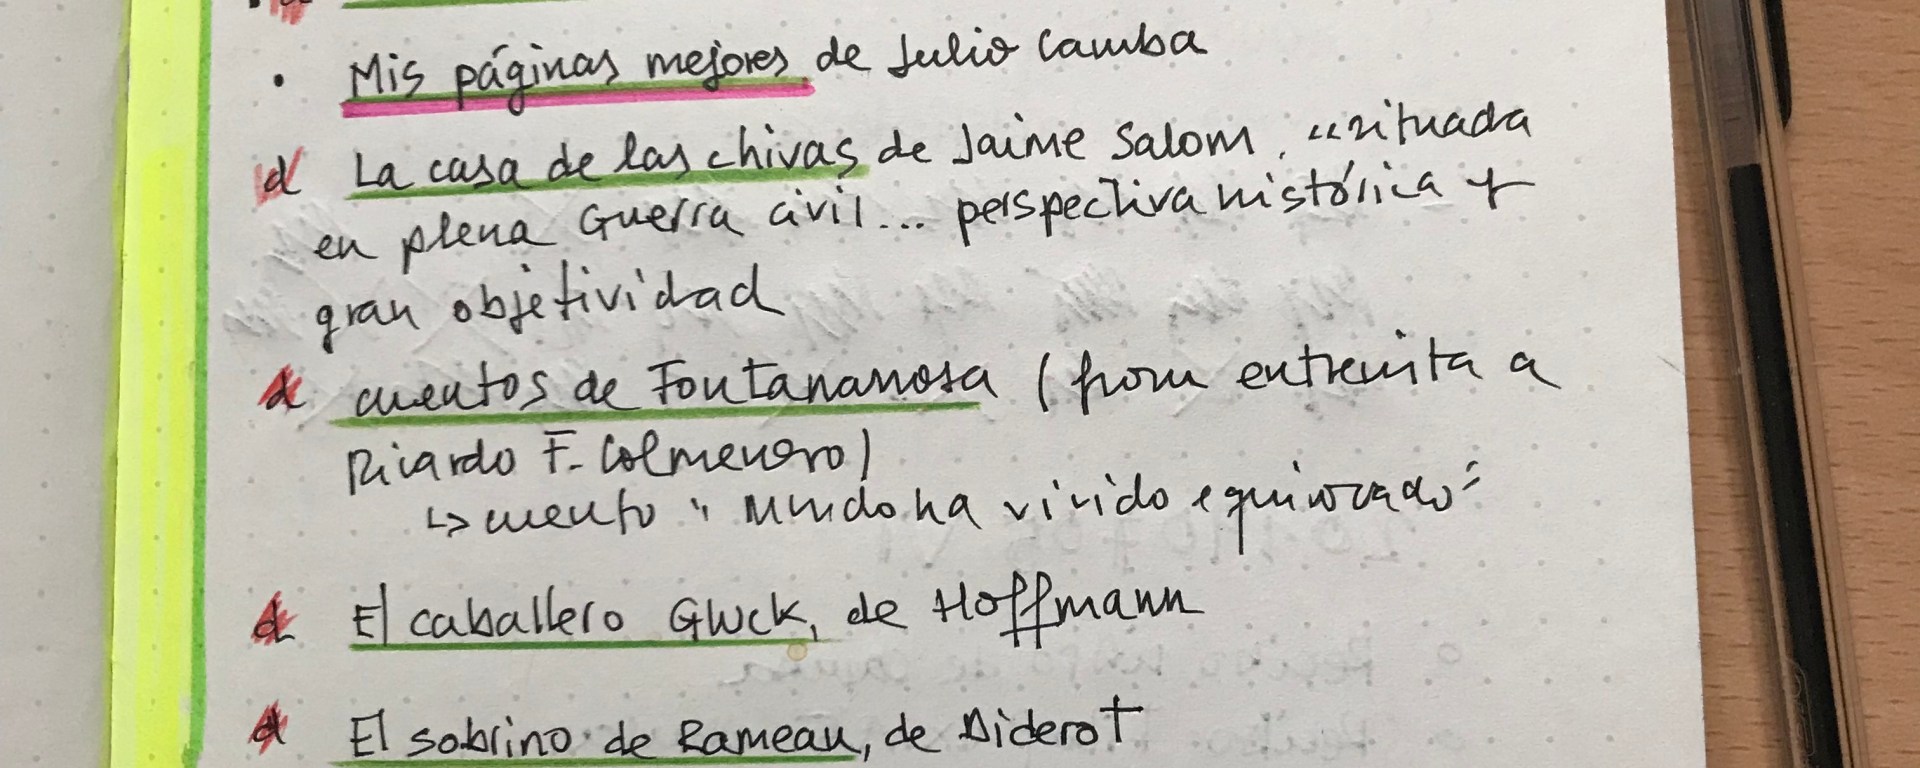 • Mis páginas mejores de Julio Camba
d La casa de las chivas de Jaime Salom, "situada
en plena Guerra civil... perspectiva histórica y
gran objetividad
d cuentos de Fontanarrosa (from entrevista a
Ricardo F. Colmenero)
↳ cuento "Mundo ha vivido equivocado"
d El caballero Gluck, de Hoffmann
d El sobrino de Rameau, de Diderot